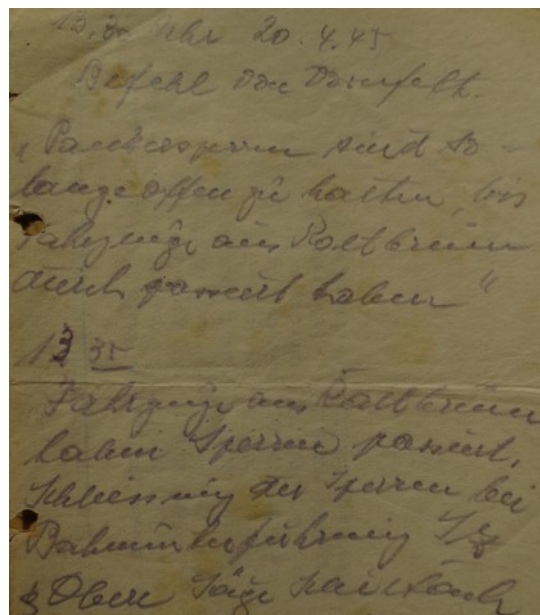 13,30 Uhr 20.4.45
Befehl von Dornfelt.
„Panzersperren sind so-
lange offen zu halten, bis
Fahrzeuge aus Kaltbrunn
durch passiert haben"
13 35
Fahrzeuge aus Kaltbrunn
haben Sperren passiert,
Schliessung der Sperren bei
Bahnunterführung
& Obere Säge